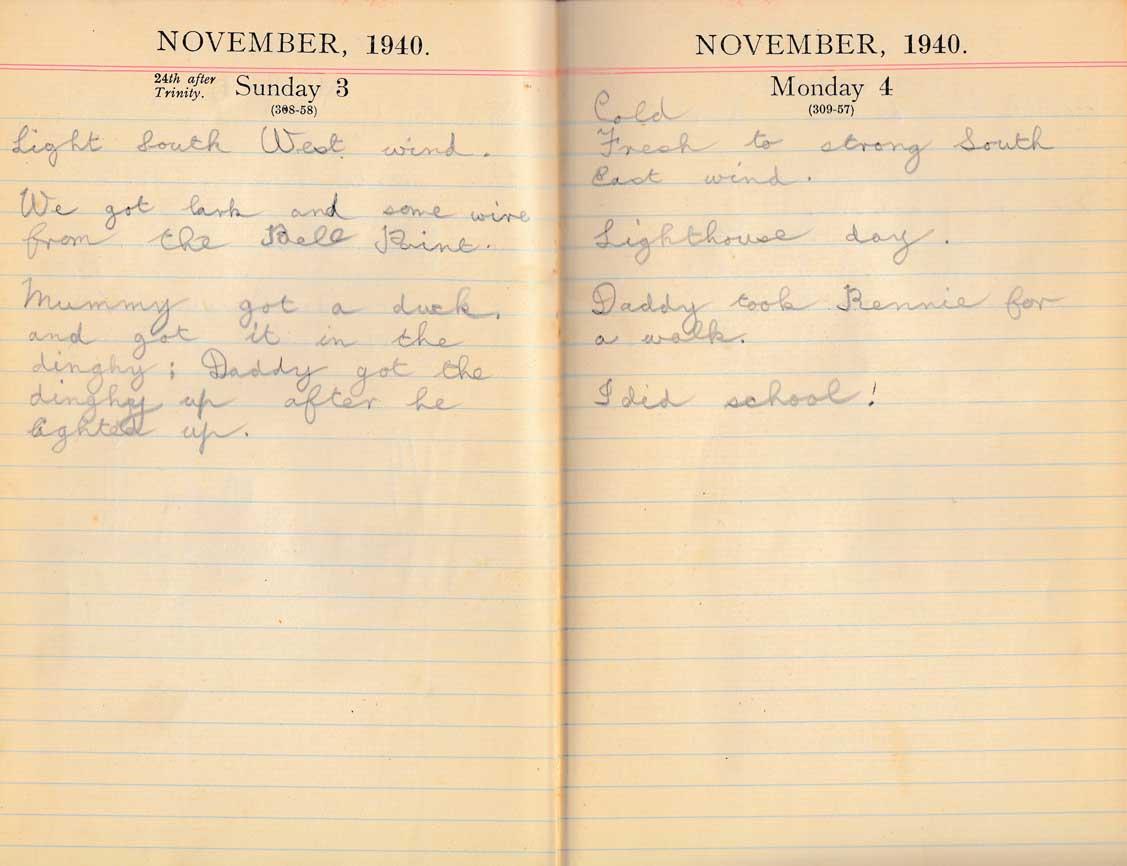 NOVEMBER, 1940.
24th after
Trinity.
Sunday 3
(308-58)
Light South West wind.
We got lark and some wire
from the Bell Point.
Mummy got a duck,
and got it in the
dinghy; Daddy got the
dinghy up after he
lighted up.
NOVEMBER, 1940.
Monday 4
(309-57)
Cold
Fresh to strong South
East wind.
Lighthouse day.
Daddy took Rennie for
a walk.
I did school!